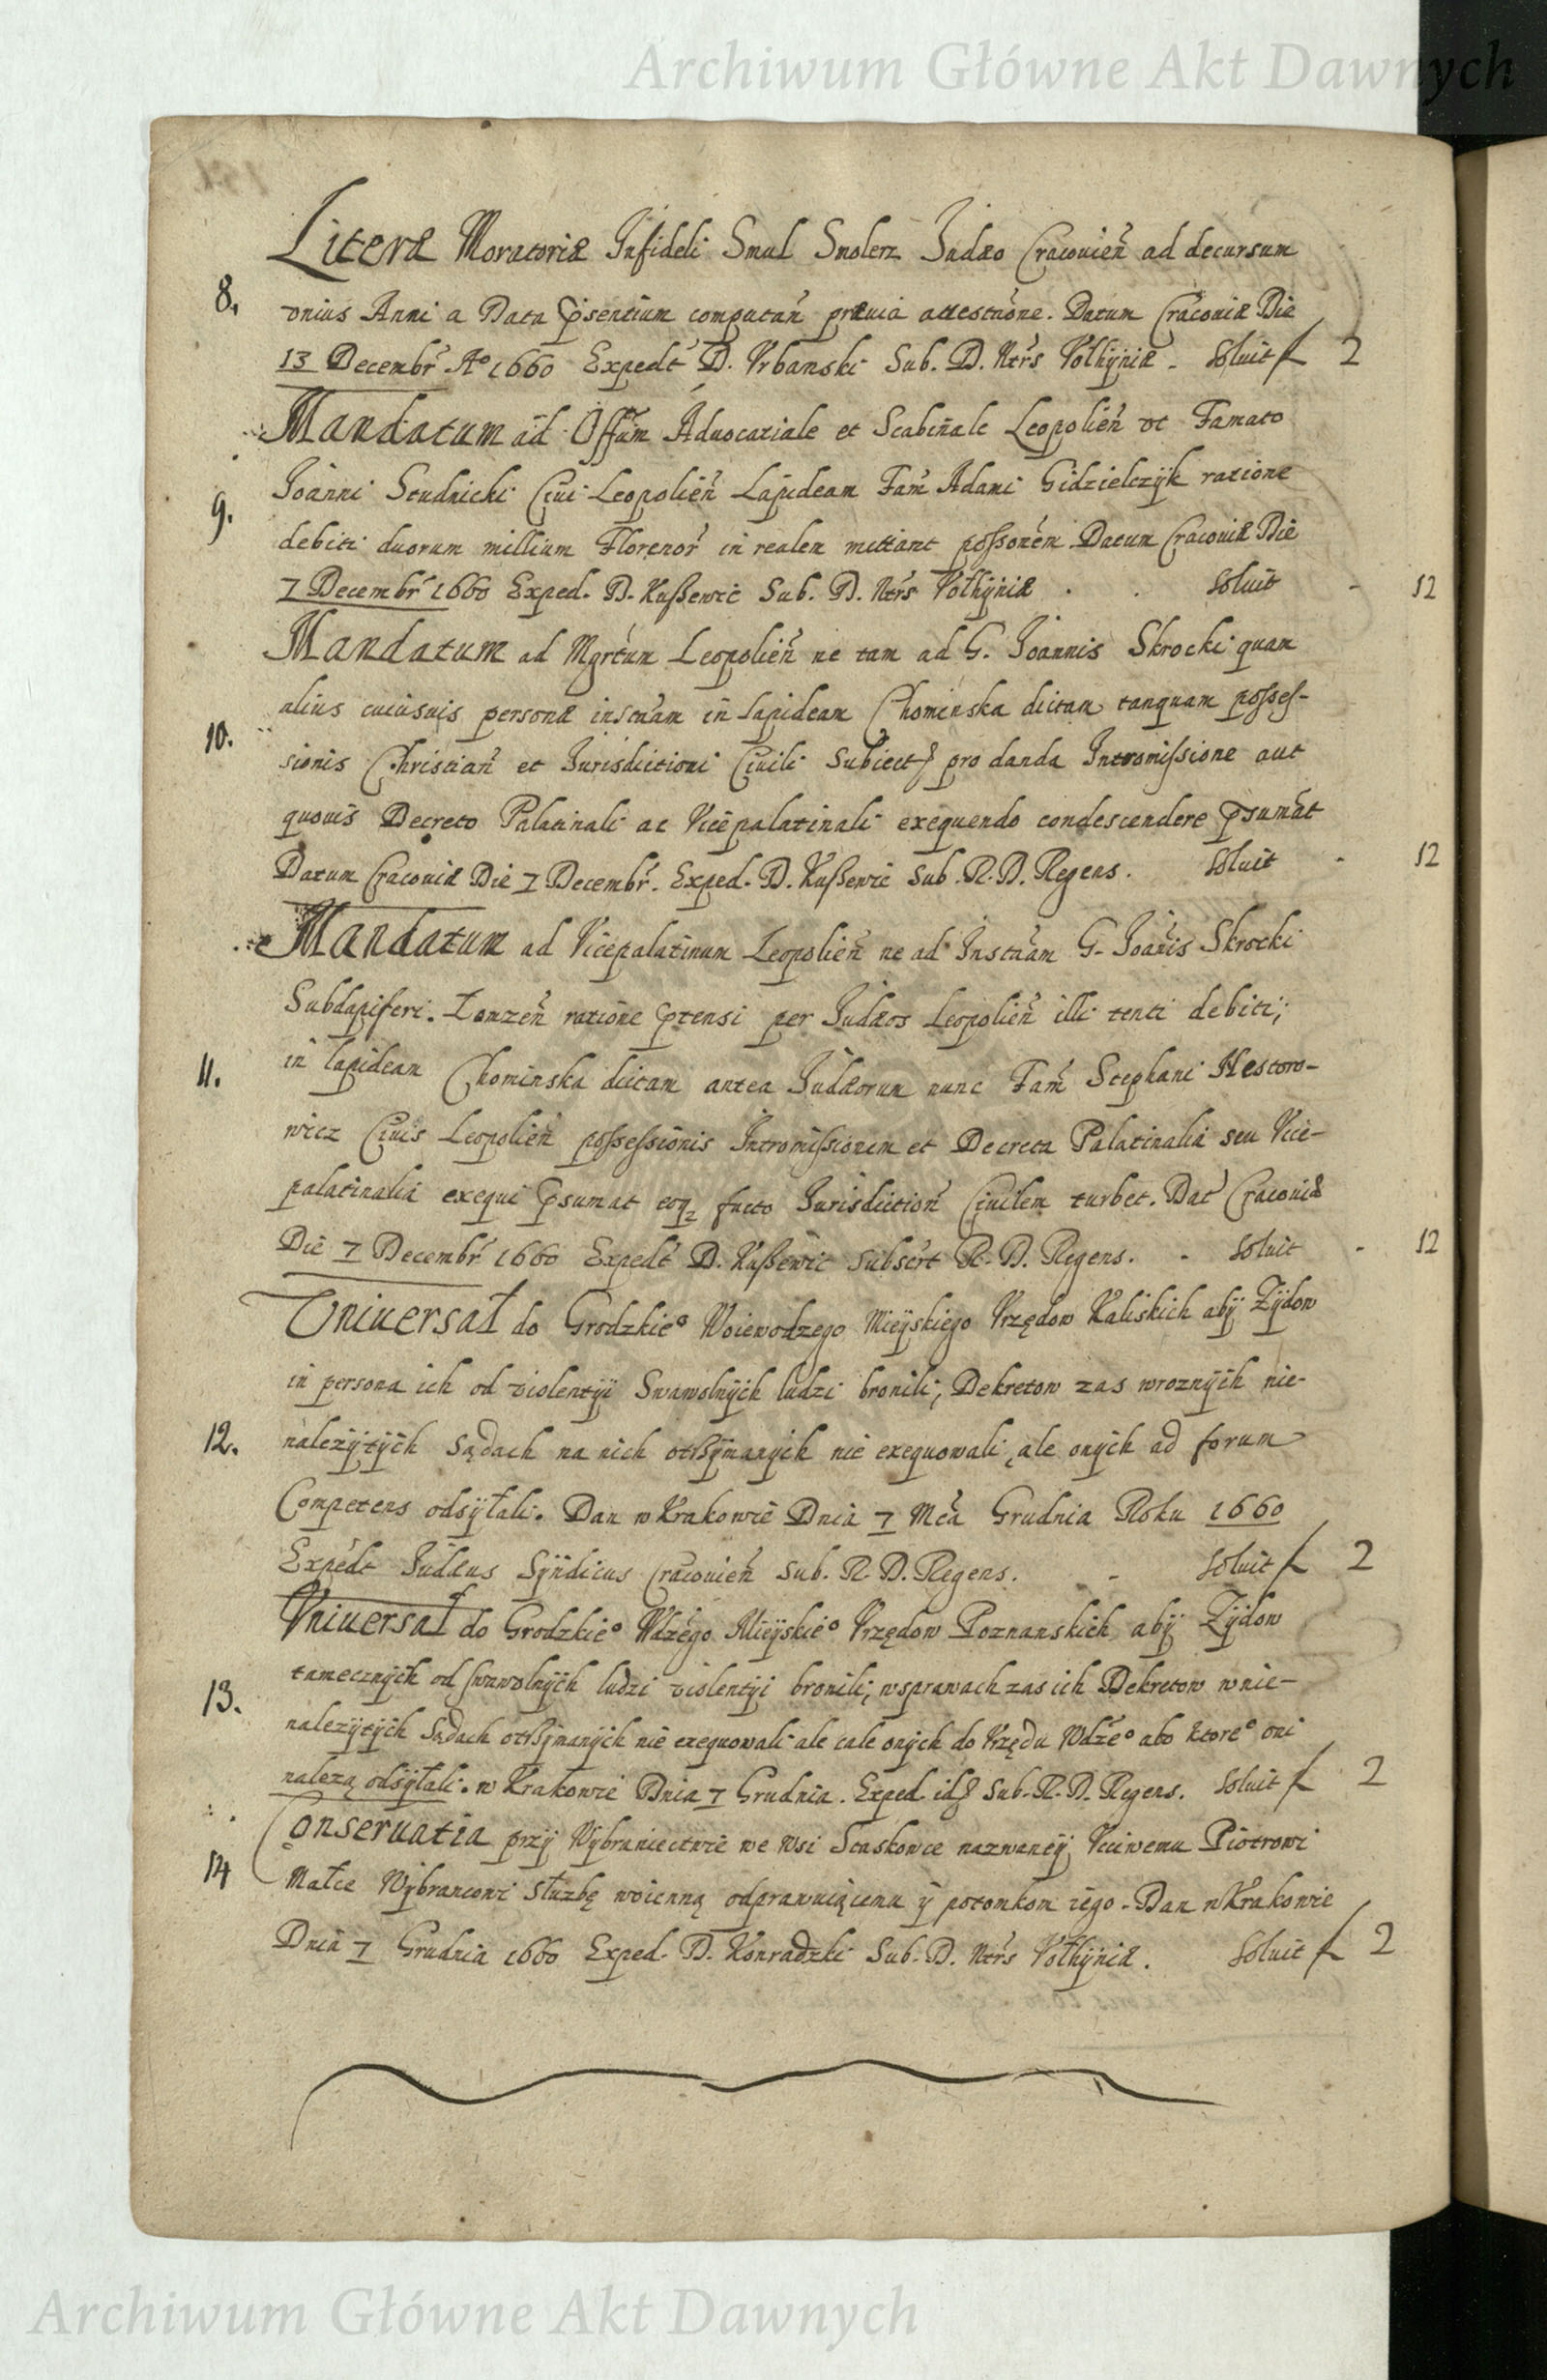 Archiwum Główne Akt Dawnych
Literæ Moratoriæ Infideli Smul Smolerz Judæo Cracovien̄ ad decursum
8. vnius Anni a Data p̄sentium computan̄ præuia attestaōne. Datum Cracouiæ Die
13 Decembr̄ Aº 1660 Expedt̄ D. Vrbanski Sub. D. Ntrs̄ Volhyniæ - Soluit f 2
Mandatum ad Off̄um Aduocatiale et Scabin̄ale Leopolien̄ vt Famato
Joanni Studnicki Ciui Leopolien̄ Lapideam Fam̄ Adami Gidzielczyk ratione
9. debiti duorum millium Florenor̄ in realem mittant poſsonem̄ Datum Cracouiæ Die
7 Decembr̄ 1660 Exped. D. Kuſzewic Sub. D. Ntrs̄ Volhyniæ . . Soluit - 12
Mandatum ad Mgrt̄um Leopolien̄ ne tam ad G. Joannis Skrocki quam
alius cuiusuis personæ inst̄uam in lapideam Chominska dictam tanquam poſseſ-
10. sionis Christian̄ et Jurisdictioni Ciuili Subiect pro danda Intromiſsione aut
quouis Decreto Palatinali ac Vicepalatinali exequendo condescendere p̄sumat
Datum Cracouiæ Die 7 Decembr̄. Exped. D. Kuſzewic Sub. R. D. Regens. Soluit - 12
Mandatum ad Vicepalatinum Leopolien̄ ne ad Inst̄uam G. Joan̄is Skrocki
Subdapiferi. Lomzen̄ ratione p̄tensi per Judæos Leopolien̄ illi tenti debiti;
11. in lapideam Chominska dictam antea Judæorum nunc Fam̄ Stephani Nestoro-
wicz Ciuis Leopolien̄ poſseſsionis Intromiſsionem et Decreta Palatinalia seu Vice-
palatinalia exequi p̄sumat eoq₂ facto Jurisdiction̄ Ciuilem turbet. Dat̄ Cracouiæ
Die 7 Decembr̄ 1660 Expedt̄ D. Kuſzewic subscrt̄ R. D. Regens. - Soluit - 12
Vniuersał do Grodzkieº Woiewodzego Mieyskiego Vrzędow Kaliskich aby Zydow
in persona ich od violentyi Swawolnych ludzi bronili; Dekretow zas wroznych nie-
12. nalezytych Sądach na nich otrſzymanych nie exequowali, ale onych ad forum
Competens odsyłali. Dan w Krakowie Dnia 7 Mc̄a Grudnia Roku 1660
Expedt̄ Judæus Syndicus Cracouien̄ Sub. R. D. Regens. - Soluit f 2
Vniuersał do Grodzkieº Wdz̄ego Mieyskieº Vrzędow Poznanskich aby Zydow
tamecznych od swawolnych ludzi violentyi bronili; wsprawach zas ich Dekretow wnie-
13. nalezytych Sądach otrſzymanych nie exequowali ale cale onych do Vrzędu Wdz̄eº abo ktoreº oni
nalezą odsyłali. w Krakowie Dnia 7 Grudnia. Exped. id Sub. R. D. Regens. Soluit f 2
Conseruatia przy Wybraniectwie we Wsi Staskowce nazwaney Vcciwemu Piotrowi
14 Małce Wybrancowi służbę woienną odprawuiącemu y potomkom iego. Dan w Krakowie
Dnia 7 Grudnia 1660 Exped. D. Konradzki Sub. D. Ntrs̄ Volhyniæ. Soluit f 2
Archiwum Główne Akt Dawnych